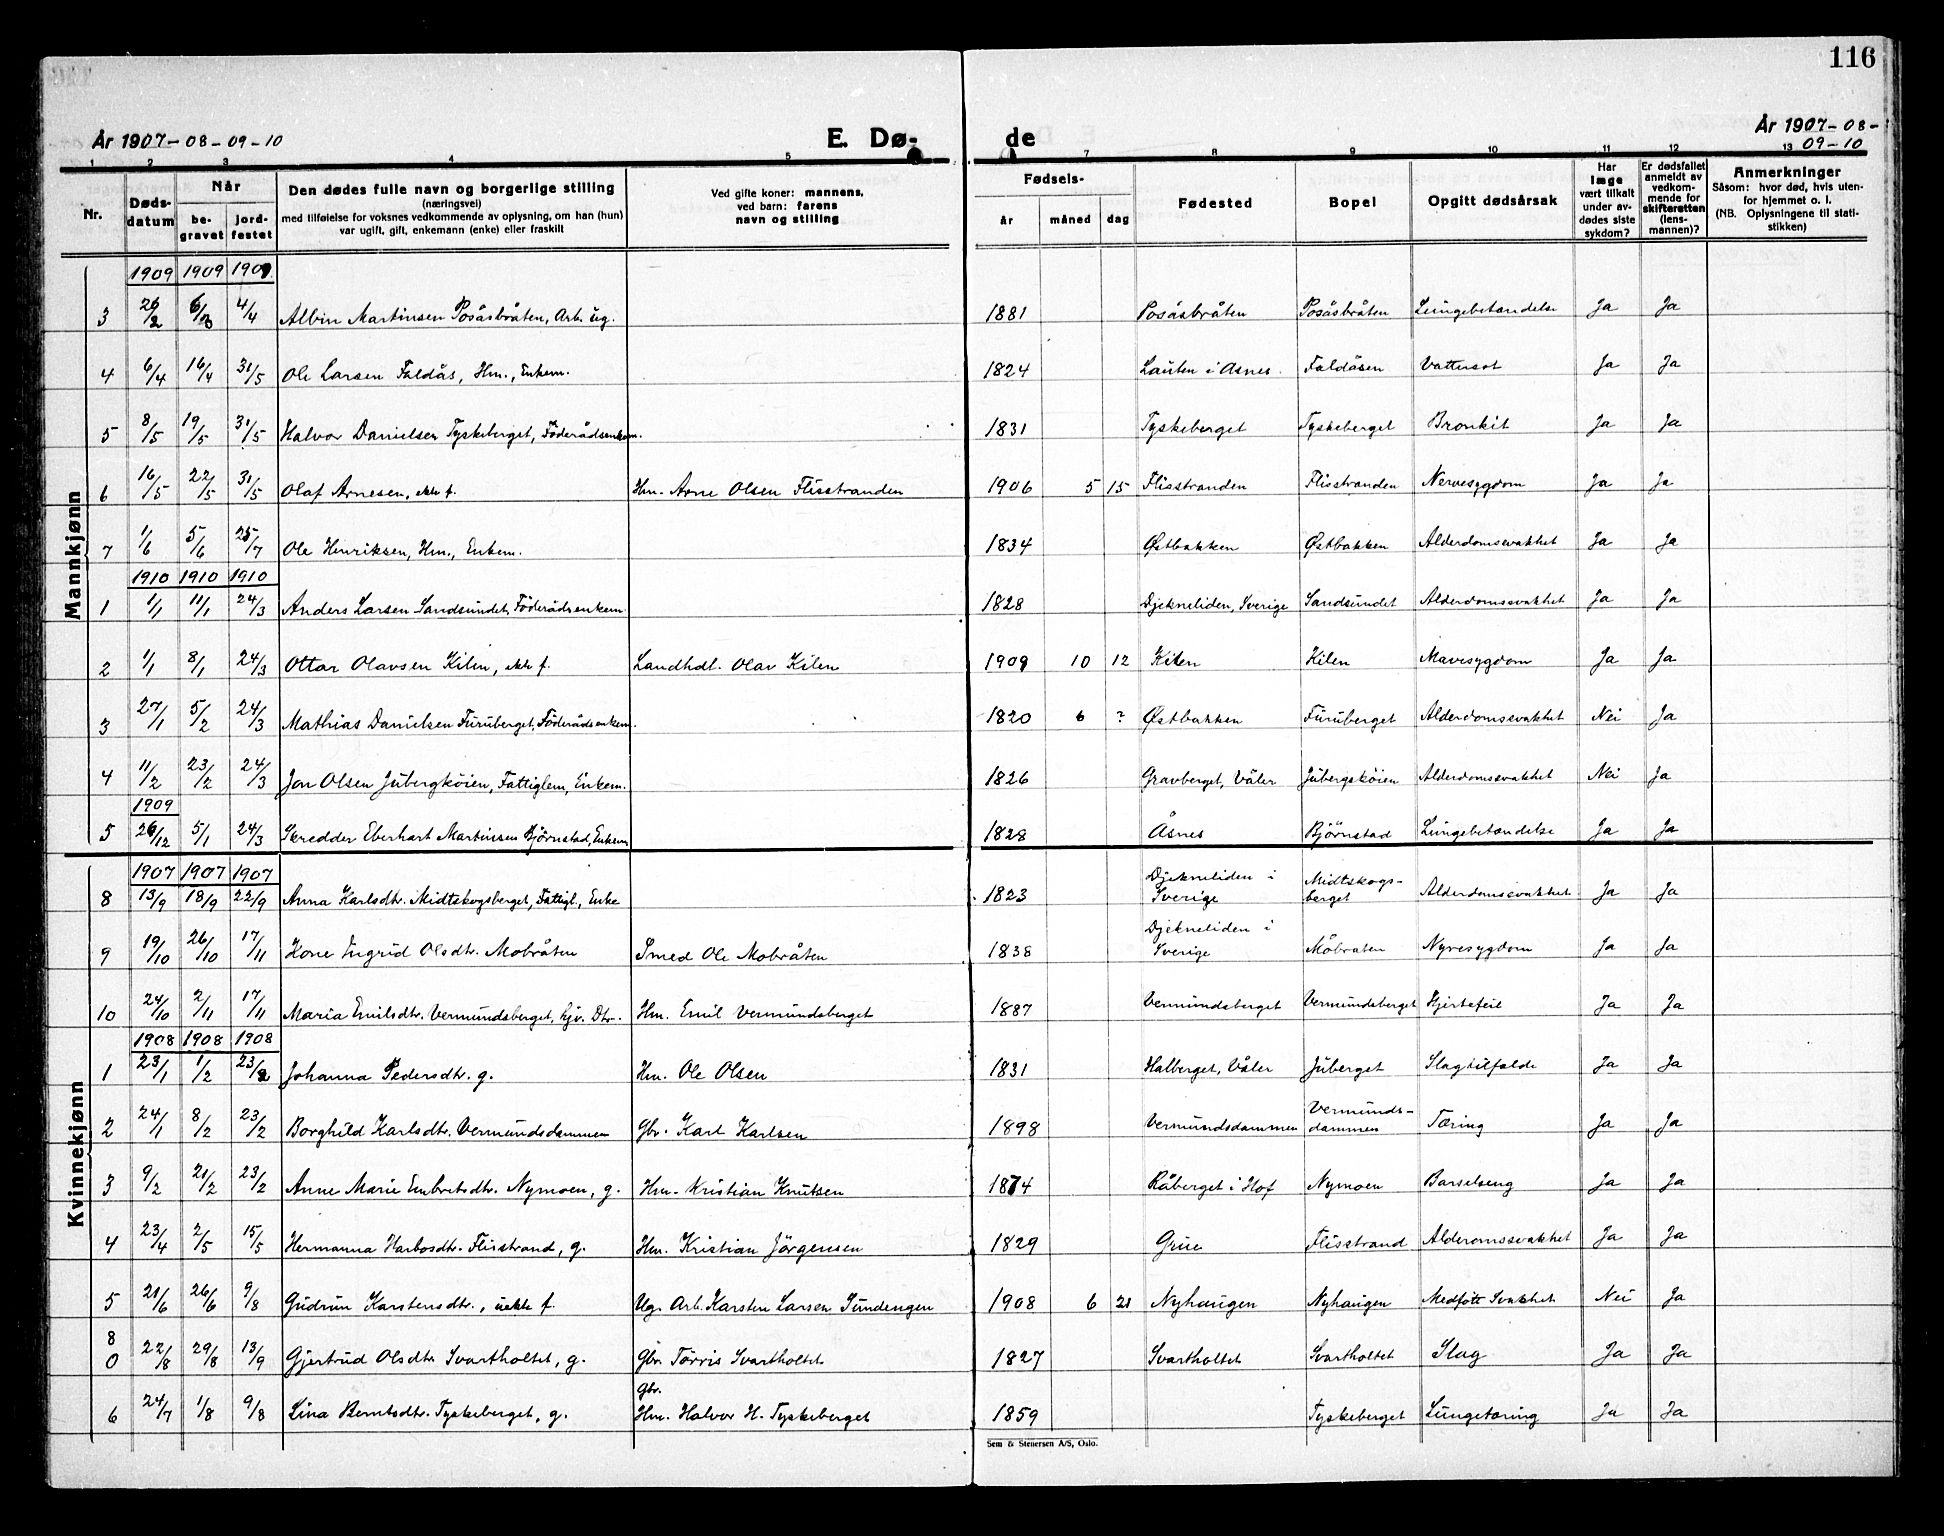 116
År 1907-08-09-10
E. Dø-
de
År 1907-08-
09-10
1 2 3 4 5 7 8 9 10 11 12 13
Nr.
Døds-
datum
Når
be-
gravet
jord-
festet
Den dødes fulle navn og borgerlige stilling
(næringsvei)
med tilføielse for voksnes vedkommende av oplysning, om han (hun)
var ugift, gift, enkemann (enke) eller fraskilt
Ved gifte koner: mannens,
ved barn: farens
navn og stilling
Fødsels-
år måned dag
Fødested
Bopel
Opgitt dødsårsak
Har
læge
vært tilkalt
under av-
dødes siste
sykdom?
Er dødsfallet
anmeldt av
vedkom-
mende for
skifteretten
(lens-
mannen)?
Anmerkninger
Såsom: hvor død, hvis uten-
for hjemmet o. l.
(NB. Oplysningene til stati-
stikken)
Mannkjønn
1909 1909 1909
3 26/2 6/3 4/4 Albin Martinsen Posåsbråten, Arb. ug. 1881 Posåsbråten Posåsbråten Lungebetændelse Ja Ja
4 6/4 16/4 31/5 Ole Larsen Faldås, Hm., Enkem. 1824 Lauten i Åsnes. Faldåsen Vattersot Ja Ja
5 8/5 19/5 31/5 Halvor Danielsen Tyskeberget, Föderådsenkem. 1831 Tyskeberget Tyskeberget Bronkit Ja Ja
6 16/5 22/5 31/5 Olaf Arnesen, ekte f. Hm. Arne Olsen Flisstranden 1906 5 15 Flisstranden Flisstranden Nervesygdom Ja Ja
7 1/6 5/6 25/7 Ole Henriksen, Hm., Enkem. 1834 Østbakken Østbakken Alderdomssvakhet Ja Ja
1910 1910 1910
1 1/1 11/1 24/3 Anders Larsen Sandsundet, Föderådsenkem. 1828 Djekneliden, Sverige Sandsundet Alderdomssvakhet Ja Ja
2 1/1 8/1 24/3 Ottar Olavsen Kilen, ekte f. Landhdl. Olav Kilen 1909 10 12 Kilen Kilen Mavesygdom Ja Ja
3 27/1 5/2 24/3 Mathias Danielsen Furuberget, Föderådsenkem. 1820 6 ? Østbakken Furuberget Alderdomssvakhet Nei Ja
4 11/2 23/2 24/3 Jon Olsen Jubergköien, Fattiglem, Enkem. 1826 Gravberget, Våler Jubergsköien Alderdomssvakhet Nei Ja
1909
5 26/12 5/1 24/3 Skredder Eberhart Martinsen Bjørnstad, Enkem. 1828 Åsnes Bjørnstad Lungebetændelse Ja Ja
Kvinnekjønn
1907 1907 1907
8 13/9 18/9 22/9 Anna Karlsdtr. Midtskogsberget, Fattigl., Enke 1823 Djekneliden i Sverige Midtskogs-berget Alderdomssvakhet Ja Ja
9 19/10 26/10 17/11 Kone Ingrid Olsdtr. Mobråten Smed Ole Mobråten 1838 Djekneliden i Sverige Mobråten Nyresygdom Ja Ja
10 24/10 2/11 17/11 Maria Emilsdtr. Vermundsberget, hjv. Dtr. Hm. Emil Vermundsberget 1887 Vermundsberget Vermundsberget Hjertefeil Ja Ja
1908 1908 1908
1 23/1 1/2 23/2 Johanna Pedersdtr. g. Hm. Ole Olsen 1831 Halberget, Våler Juberget Slagtilfælde Ja Ja
2 24/1 8/2 23/2 Borghild Karlsdtr. Vermundsdammen Gbr. Karl Karlsen 1898 Vermundsdammen Vermunds-dammen Tæring Ja Ja
3 9/2 21/2 23/2 Anne Marie Embretsdtr. Nymoen, g. Hm. Kristian Knutsen 1874 Råberget i Hof Nymoen Barselseng Ja Ja
4 23/4 2/5 15/5 Hermanna Harbosdtr. Flisstrand, g. Hm. Kristian Jörgensen 1829 Grue Flisstrand Alderomssvakhet Ja Ja
5 21/6 26/6 9/8 Gudrun Karstensdtr., uekte f. Ug. Arb. Karsten Larsen Sundengen 1908 6 21 Nyhaugen Nyhaugen Medfött Svakhet Nei Ja
8
0 22/8 29/8 13/9 Gjertrud Olsdtr. Svartholtet, g. Gbr. Törris Svartholtet 1827 Svartholtet Svartholtet Slag Ja Ja
Gbr.
6 24/7 1/8 9/8 Lina Berntsdtr. Tyskeberget, g. Hm. Halvor H. Tyskeberget 1859 Tyskeberget Lungetæring Ja Ja
Sem & Stenersen A/S, Oslo.